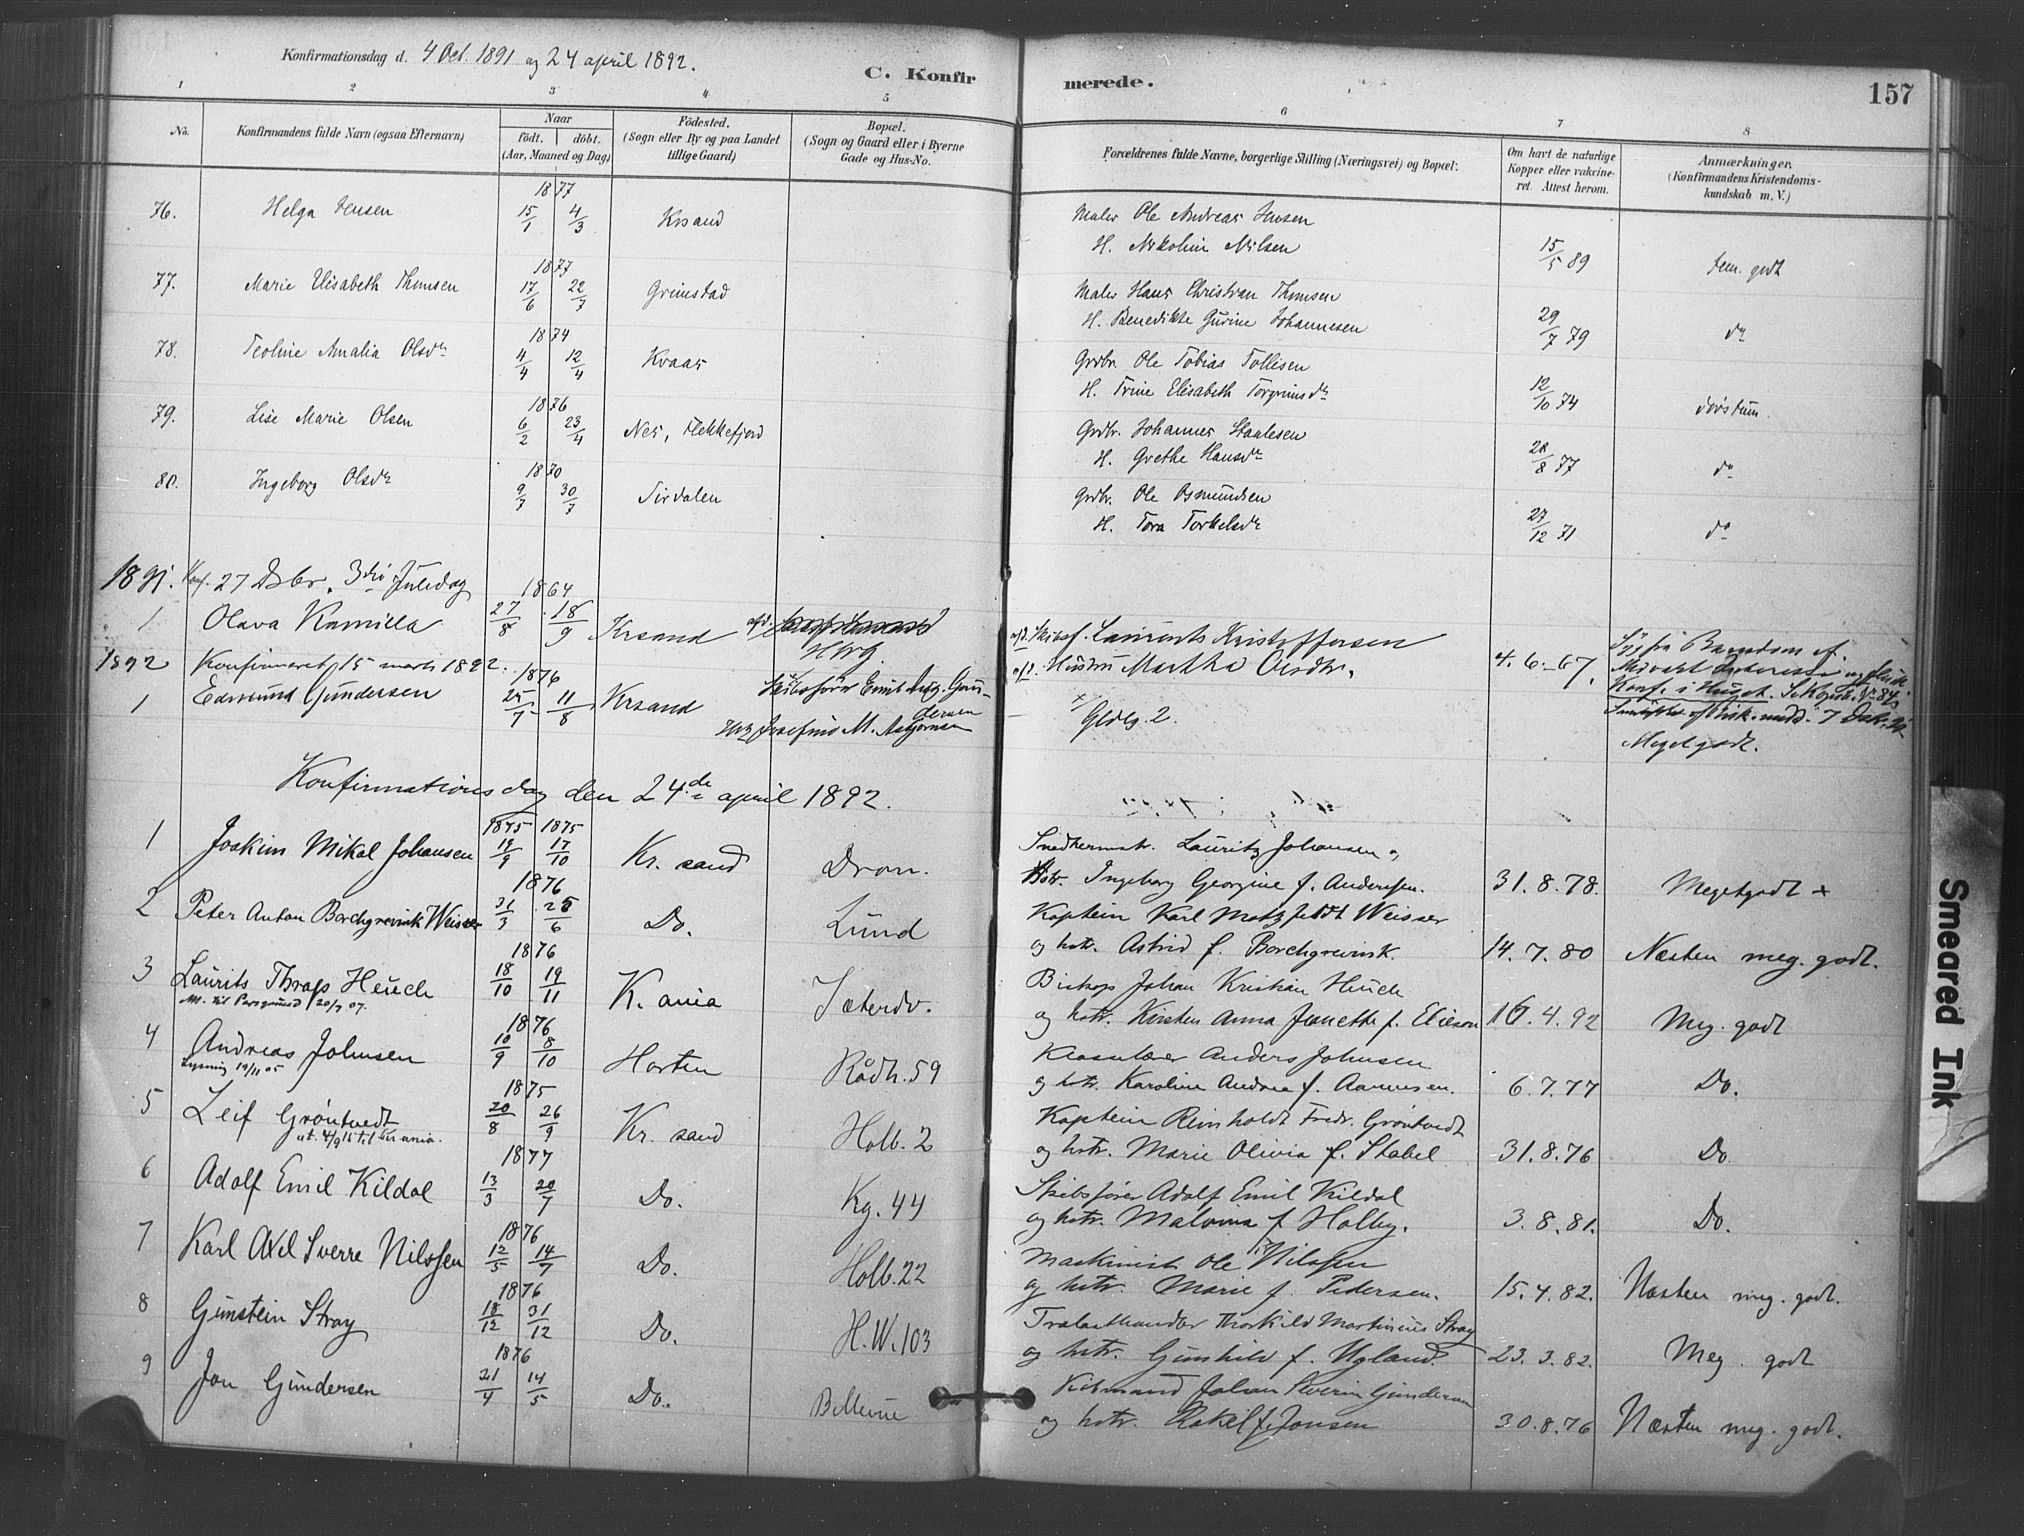 Konfirmationsdag d. 4 Oct. 1891 og 24 april 1892.
C. Konfirmerede.
157
1 2 3 4 5 6 7 8
No.
Konfirmandens fulde Navn (ogsaa Efternavn)
Naar
födt. döbt.
(Aar, Maaned og Dag)
Födested.
(Sogn eller By og paa Landet
tillige Gaard)
Bopæl.
(Sogn og Gaard eller i Byerne
Gade og Hus-No.
Forældrenes fulde Navne, borgerlige Stilling (Næringsvei) og Bopæl:
Om havt de naturlige
Kopper eller vakcine-
ret. Attest herom.
Anmærkninger,
(Konfirmandens Kristendoms-
kundskab m. V.)
1877
76. Helga Jensen 15/1 4/3 Krsand Maler Ole Andreas Jensen
H. Nikoline Nilsen 15/5 89 tem. godt
1877
77. Marie Elisabeth Thomsen 17/6 22/7 Grimstad Maler Hans Christian Thomsen
H. Benedikte Gurine Johannesen 29/7 79 do
1874
78. Teoline Amalia Olsdr 4/4 12/4 Kvaas Grdbr. Ole Tobias Tollisen
H. Trine Elisabeth Torgrimsdr 12/10 74 døvstum.
1876
79. Lise Marie Olsen 6/2 23/4 Nes, Flekkefjord Grdbr. Johannes Staalesen
H. Grethe Hansdr 28/8 77 do
1870
80. Ingeborg Olsdr 9/7 30/7 Sirdalen Grdbr. Ole Osmundsen
H. Tora Torkelsdr 27/12 71 do
1891. Konf. 27 Dsbr. 3die Juledag
1864
1 Olava Kamilla 27/8 18/9 Krsand afd. Skibsf. Laurents Kristoffersen
afd. Hustru Martha Olsdtr. 4.6.67. Syg fra Barndom af.
Konf. i Huset.
1892 Konfirmeret 15 marts 1892.
1876
1 Edmund Gundersen 25/7 11/8 Krsand Skibsfører Emil Aug. Gun-
dersen
Josefine M. Asbjørnsen
Gldlg 2.
Meget godt.
Konfirmationsdag den 24de april 1892.
1875 1875
1 Joakim Mikal Johansen 19/9 17/10 Kr. sand Dron. Snedkermstr. Lauritz Johansen og
Hstr. Ingeborg Georgine f. Andersen. 31.8.78. Megetgodt +
1876
2 Peter Anton Borchgrevink Weisser 31/3 25/6 Do. Lund Kaptein Karl Motzfeldt Weisser
og hstr. Astrid f. Borchgrevink. 14.7.80 Næsten meg. godt.
1876
3 Laurits Thrap Heuch 18/10 19/11 K. ania Sæterdv. Biskop Johan Kristian Heuch
Att. til Porsgrund 20/7 07. og hstr. Kirsten Anna Jeanette f. Elieson 16.4.92 Meg. godt
1876
4 Andreas Johnsen 10/9 8/10 Horten Rådh. 59 Klasselærer Anders Johnsen
Lysning 19/11 05 og hstr. Karoline Andrea f. Aanunsen. 6.7.77 Do.
1875
5 Leif Grøntvedt 20/8 26/9 Kr. sand Holb. 2 Kaptein Reinholdt Fredr. Grøntvedt
at. 4/9 15 til Kr. ania. og hstr. Marie Olivia f. Stabel 31.8.76 Do
1877
6 Adolf Emil Kildal 13/3 20/7 Do. Kg. 44 Skibsfører Adolf Emil Kildal
og hstr. Malvina f Holby. 3.8.81. Do.
1876
7 Karl Axel Sverre Nilssen 12/5 14/7 Do. Holb. 22 Maskinist Ole Nilssen
og hstr. Marie f. Pedersen. 15.4.82. Næsten meg. godt.
1876
8 Gunstein Stray 18/12 31/12 Do. H.W. 103 Trælasthandler Thorkild Martinius Stray
og hstr. Gunhild f. Ugland. 23.3.82. Meg. godt
1876
9 Jon Gundersen 21/4 14/5 Do. Bellevue Kjøbmand Johan Severin Gundersen
og hstr. Rakel f. Jonsen 30.8.76 Næsten meg. godt.
Smeared Ink